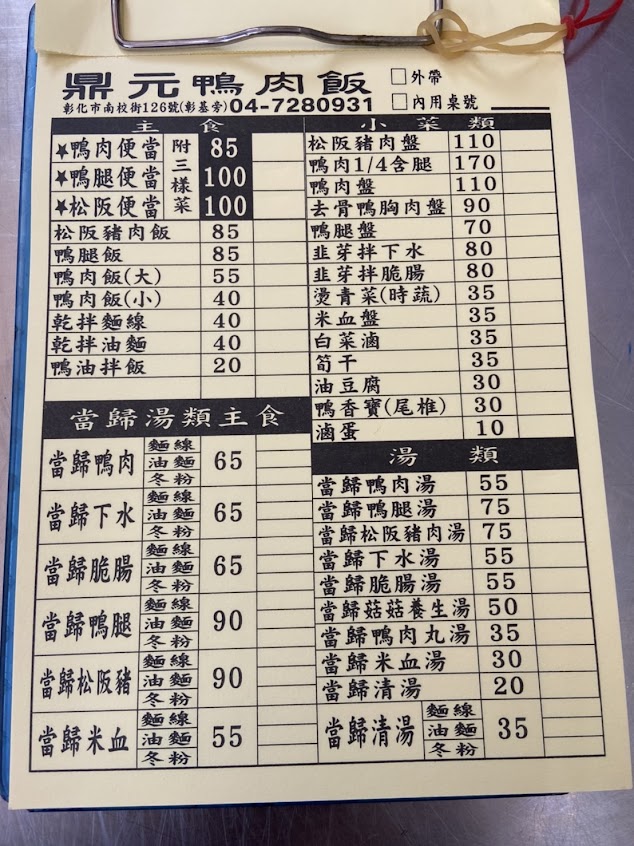 鼎元鴨肉飯
彰化市南校街126號(彰基旁)04-7280931
□外帶
□內用桌號
主食
★鴨肉便當 附三樣菜 85
★鴨腿便當 100
★松阪便當 100
松阪豬肉飯 85
鴨腿飯 85
鴨肉飯(大) 55
鴨肉飯(小) 40
乾拌麵線 40
乾拌油麵 40
鴨油拌飯 20
當歸湯類主食
當歸鴨肉 麵線 油麵 冬粉 65
當歸下水 麵線 油麵 冬粉 65
當歸脆腸 麵線 油麵 冬粉 65
當歸鴨腿 麵線 油麵 冬粉 90
當歸松阪豬 麵線 油麵 冬粉 90
當歸米血 麵線 油麵 冬粉 55
小菜類
松阪豬肉盤 110
鴨肉1/4含腿 170
鴨肉盤 110
去骨鴨胸肉盤 90
鴨腿盤 70
韭芽拌下水 80
韭芽拌脆腸 80
燙青菜(時蔬) 35
米血盤 35
白菜滷 35
筍干 35
油豆腐 30
鴨香寶(尾椎) 30
滷蛋 10
湯類
當歸鴨肉湯 55
當歸鴨腿湯 75
當歸松阪豬肉湯 75
當歸下水湯 55
當歸脆腸湯 55
當歸菇菇養生湯 50
當歸鴨肉丸湯 35
當歸米血湯 30
當歸清湯 20
當歸清湯 麵線 油麵 冬粉 35